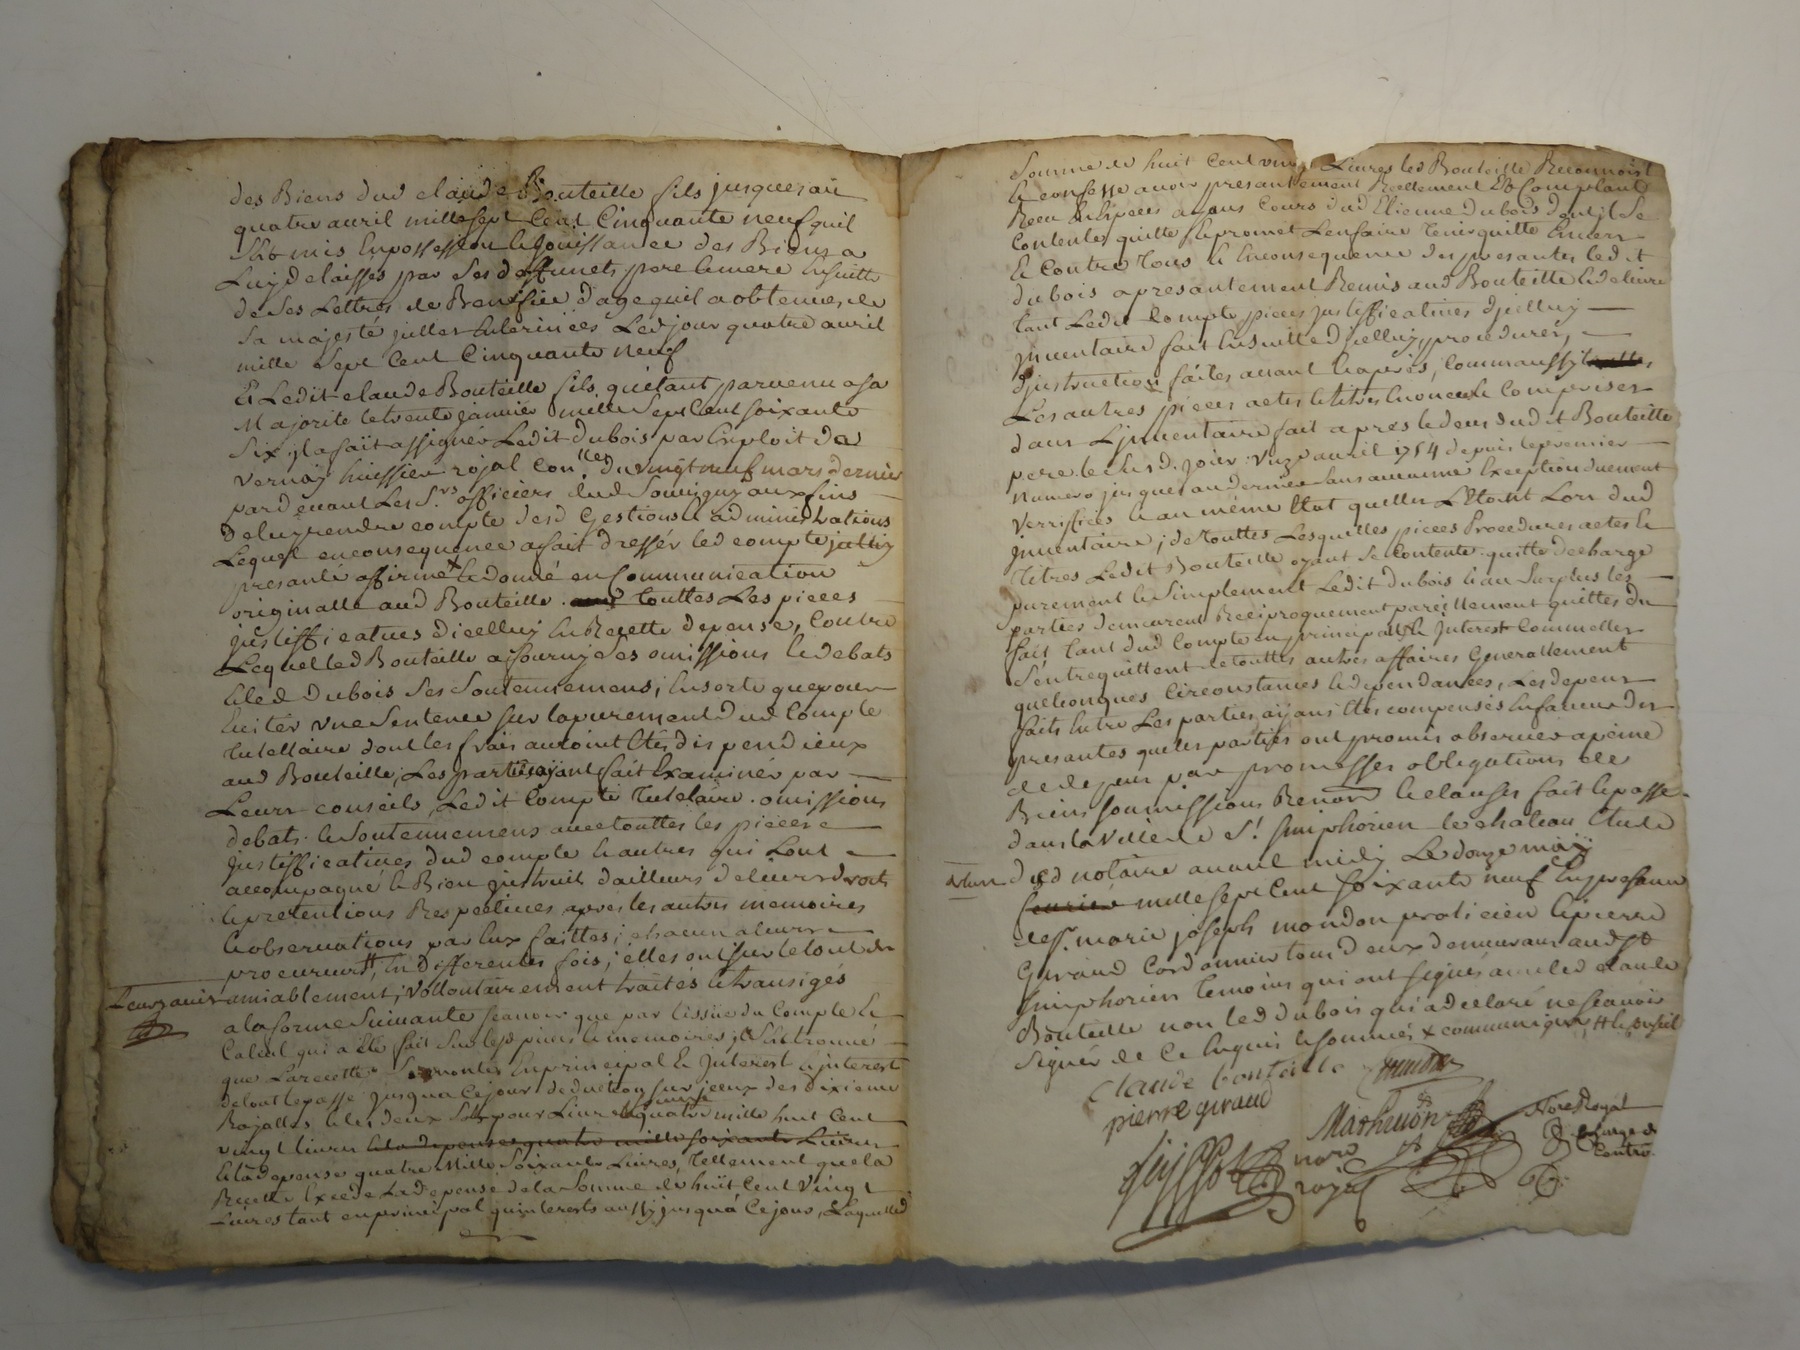 des Biens dud claude Bouteille fils jusques au
quatre avril mille sept Cent Cinquante neuf quil
Est mis En possession Et Jouissance des Biens a
Luy delaissés par ses deffunets pere Et mere En suitte
de ses Lettres de Benefice d'age quil a obtenues de
sa majesté juelles Enterinées Led jour quatre avril
mille Sept Cent Cinquante neuf
Et Ledit claude Bouteille fils quétant parvenu a sa
Majorité le trente janvier mille Sept Cent soixante
Six jl a fait assigner Ledit Dubois par Exploit de
vernay huissier royal du vingt neuf mars dernier
pardevant Les Srs officiers dud Souvigny aux fins
de luy rendre compte desd Gestions Et administrations
Lequel en consequence a fait dresser led compte jcelluy
presanté affirmé Et donné en Communication
originalle aud Bouteille touttes Les pieces
justifficatives dicelluy En Recette depense, Contre
Lequel led Bouteille a fourny des omissions Et debats
Et led Dubois Ses Soutennemens; En sorte que pour
Eviter une Sentence sur lapurement dud Compte
tutellaire dont les frais auroint Etés dispendieux
aud Bouteille; Les parties ayant fait Examiner par
Leurs conseils, Ledit Compte Tutelaire. omissions
debats. Et Soutennemens avec touttes les pieces
justifficatives dud compte Et autres qui Lont
accompagné Et Bien jnstruits d'ailleurs de leurs droits
Et pretentions Respectives, apres les autres memoires
Et observations par Eux faittes; chacun a leurs
procureurs, En differentes fois; elles ont sur le tout de
Leurs avis amiablement; vollontairement traités Et transigés
a la forme Suivante scavoir que par lissüe du Compte Et
Calcul qui a Eté fait Sur lesd pieces Et memoires jl S'Est trouvé
que La recette monter En principal Et Jnterest
de tout le passé jusqua Ce jour deduction sur jceux des dixieme
Royalles Et les deux Sols pour Livre quatre mille huit Cent
vingt livres Et la depense quatre mille soixante Livres
Et la depense quatre Mille Soixante Livres, Tellement que la
Recette Excede La depense de la Somme de huit Cent Vingt
Livres tant en principal quinterests aussy jusquá Ce jour, Laquelle
Somme de huit Cent vingt Livres led Bouteille Reconnoist
Et confesse avoir presantement Reellement Et Comptant
Receu En Especes ayans Cours dud Etienne Dubois dont jl Se
Contente quitte Et promet Len faire tenir quitte Envers
Et Contre tous Et En consequence des presantes led
dubois a presantement Remis aud Bouteille
tant Ledit Compte pieces justifficatives djcelluy
jnventaire fait En suitte djcelluy, procedures,
djnstruction faites avant Et apres, Comm'aussy
Les autres pieces actes Et titres Enoncés Et Comprises
dans Ljnventaire fait apres le deces dud Bouteille
pere avril 1754 depuis le premier
numero jusques au dernier sans aucunne Exception duement
verriffiées Et au même Etat quelles L'Etoint Lors dud
jnventaire; de touttes Lesquelles pieces Procedures actes Et
Titres Ledit Bouteille Se Contente. quitte decharge
purement Et Simplement Ledit dubois Et au Surplus les
parties demeurent Reciproquement pareillement quittes du
fait tant dud Compte en principal Et Jnterest Comm'elles
S'entrequittent de touttes autres affaires Generallement
quelconques Circonstances Et dependances, Les depens
faits Entre Les parties ayans Etés compensés En faveur des
presantes que les parties ont promis observer a peine
de depens par promesses obligations de
Biens soumissions Renon Et clauses fait Et passé
dans la ville de St. simphorien le chateau Etude
dud notaire avant midy Le douze may
fevrier mille sept Cent soixante neuf En presance
de Sr. marie joseph mondon praticien Et pierre
Giraud Cordonnier tous deux demeurans aud St
simphorien temoins qui ont signés avec led claude
Bouteille non led dubois qui a declaré ne scavoir
Signer de Ce Enquis Et sommés
Claude bouteille mondon
pierre giraud
Mathevon
nore
royal
Nore Royal